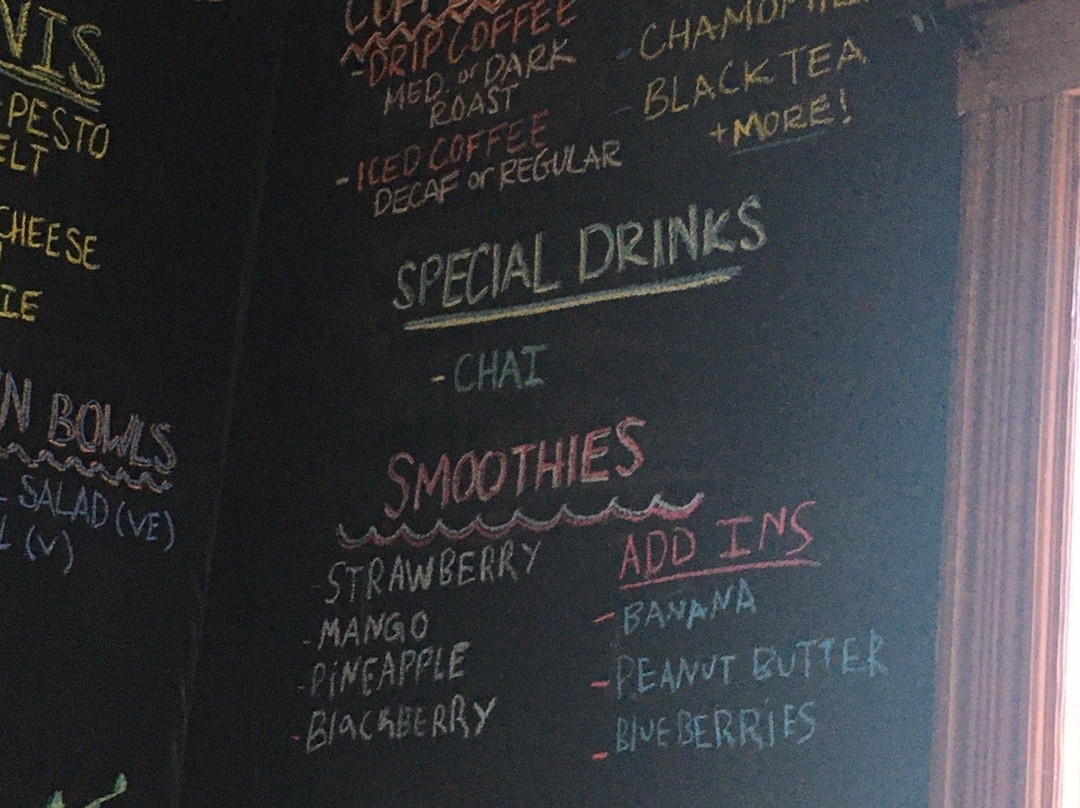 PESTO
CHEESE
BOWLS
SALAD (VE)
(V)
-DRIP COFFEE
MED. or DARK
ROAST
-ICED COFFEE
DECAF or REGULAR
- BLACK TEA
+MORE!
SPECIAL DRINKS
-CHAI
SMOOTHIES
-STRAWBERRY
-MANGO
-PiNEAPPLE
-BlackBERRY
ADD INS
-BANANA
-PEANUT BUTTER
-BlueBERRiES